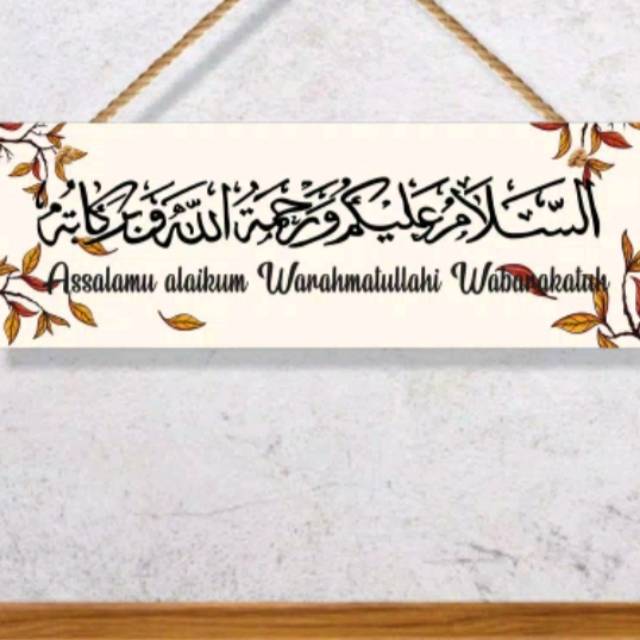 السَّلَامُ عَلَيْكُمْ وَرَحْمَةُ اللّٰهِ وَبَرَكَاتُهُ
Assalamu alaikum Warahmatullahi Wabarakatuh